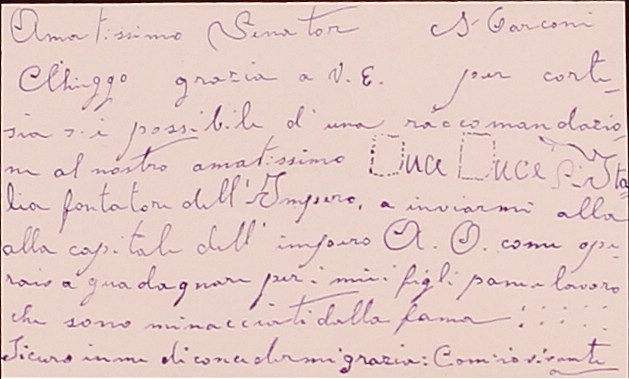 Amatissimo Senator S. Carconi
Chieggo grazia a V. E. per corte-
sia s. è possibile d'una raccomandazio-
ne al nostro amatissimo Duce Duce Ita-
lia fontatore dell'Impero, a inviarmi alla
alla capitale dell'impero A. O. come ope-
raio a guadagnare per i miei figli pane lavoro
che sono minacciati dalla fama : : : : :
Sicuro in me di concedermi grazia: